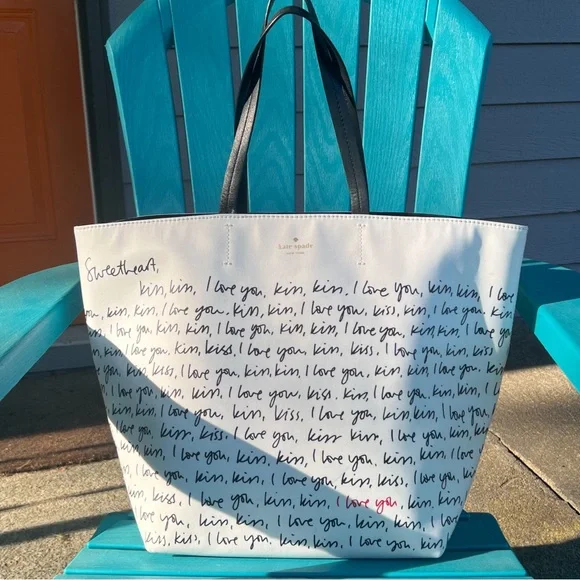 kate spade
NEW YORK
Sweetheart,
kiss, kiss, I love you, kiss, kiss, I love you, kiss, kiss, I love
you, kiss, kiss, I love you, kiss, kiss, I love you, kiss, kiss, I love you, kiss
kiss, kiss, I love you, kiss, kiss, I love you, kiss, kiss, I love
I love you, kiss, kiss, I love you, kiss, kiss, I love you, kiss, kiss
kiss, kiss, I love you, kiss, kiss, I love you, kiss, kiss, I love
I love you, kiss, kiss, I love you, kiss, kiss, I love you, kiss
kiss, kiss, I love you, kiss, kiss, I love you, kiss, kiss, I love
you, kiss, kiss, I love you, kiss kiss, I love you, kiss, kiss
I love you, kiss, kiss, I love you, kiss, kiss, I love
kiss, kiss, I love you, kiss, kiss, I love you, kiss, kiss
kiss, kiss, I love you, kiss, kiss, I love you, kiss, kiss
I love you, kiss, kiss, I love you, kiss, kiss, I love
kiss, kiss, I love you, kiss, kiss, I love you, kiss,